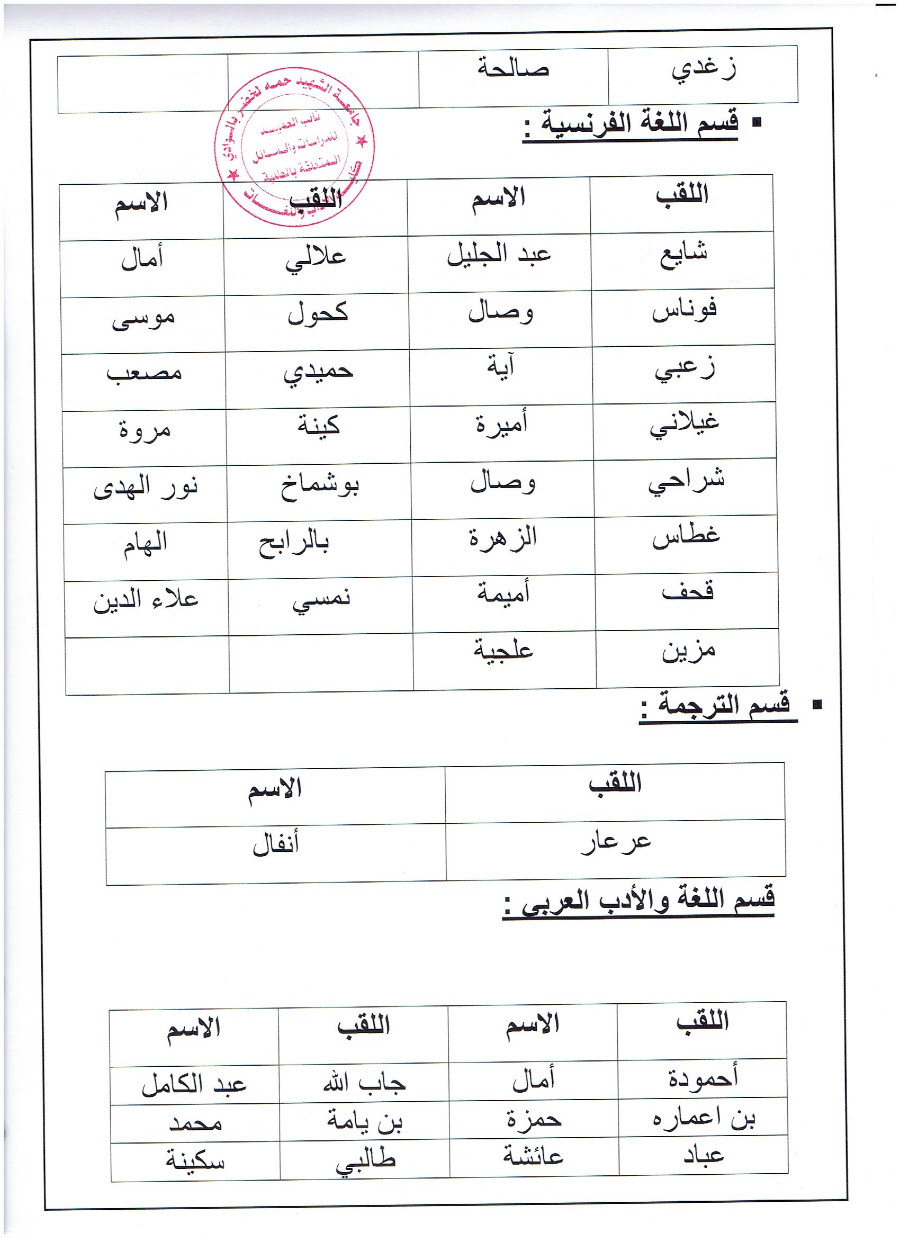 زغدي صالحة
جامعة الشهيد حمه لخضر بالوادي
نائب العميد
للدراسات والمسائل
المتعلقة بالطلبة
كلية الآداب واللغات
▪ قسم اللغة الفرنسية :
اللقب الاسم اللقب الاسم
شايع عبد الجليل علالي أمال
فوناس وصال كحول موسى
زعبي آية حميدي مصعب
غيلاني أميرة كينة مروة
شراحي وصال بوشماخ نور الهدى
غطاس الزهرة بالرابح الهام
قحف أميمة نمسي علاء الدين
مزين علجية
▪ قسم الترجمة :
اللقب الاسم
عرعار أنفال
قسم اللغة والأدب العربي :
اللقب الاسم اللقب الاسم
أحمودة أمال جاب الله عبد الكامل
بن اعماره حمزة بن يامة محمد
عباد عائشة طالبي سكينة